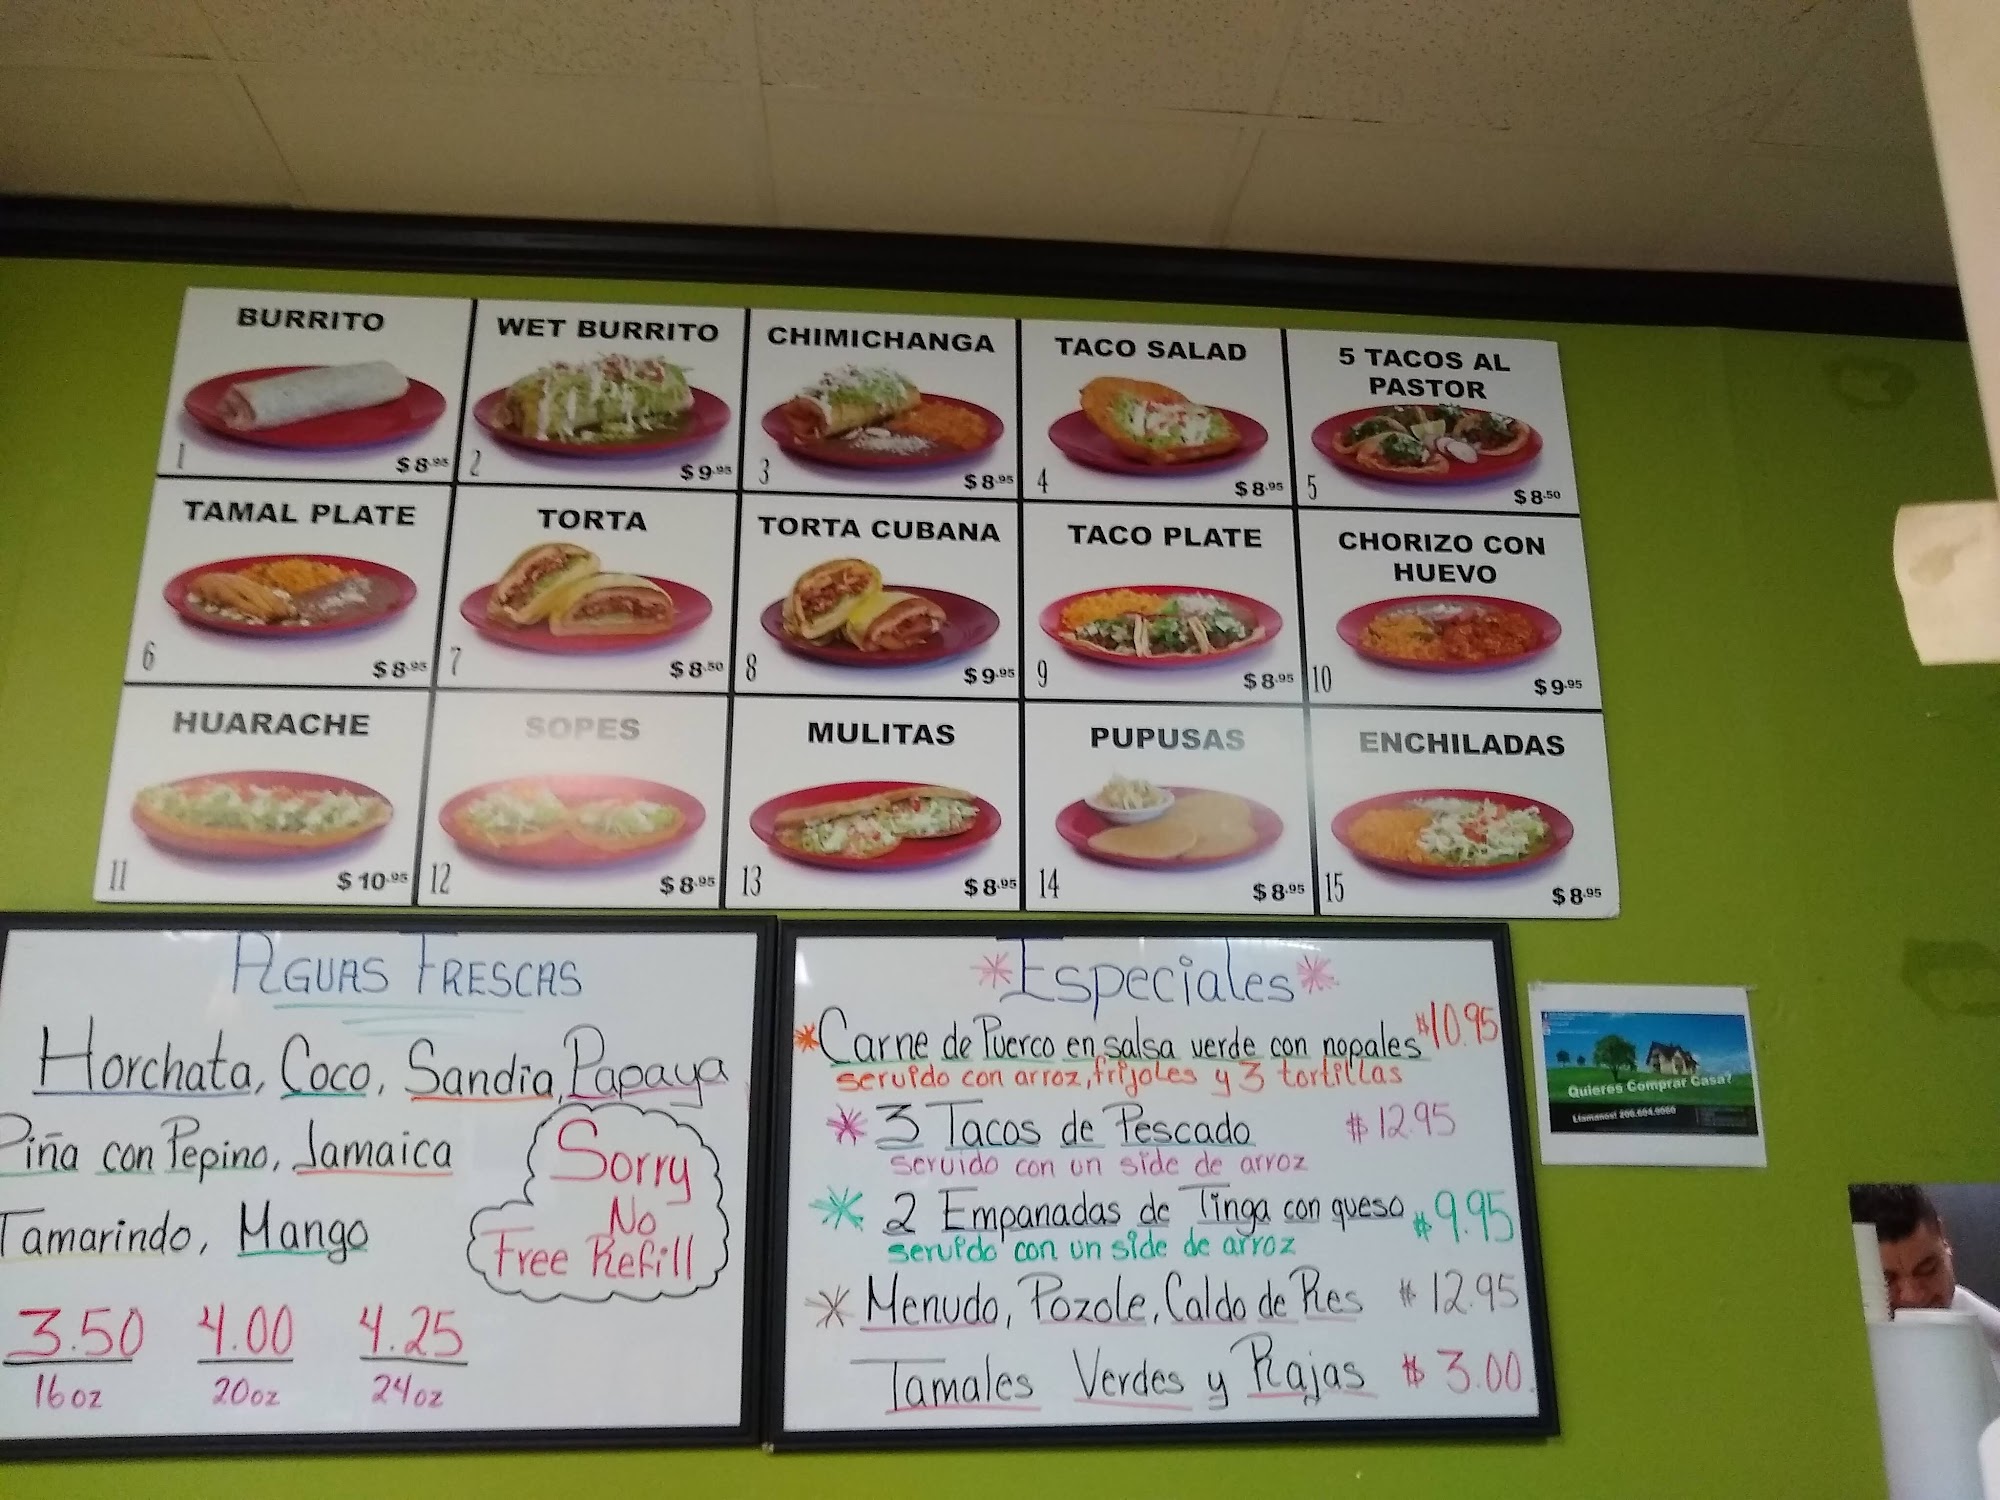 BURRITO
1
$ 8.95
WET BURRITO
2
$ 9.95
CHIMICHANGA
3
$ 8.95
TACO SALAD
4
$ 8.95
5 TACOS AL
PASTOR
5
$ 8.50
TAMAL PLATE
6
$ 8.95
TORTA
7
$ 8.50
TORTA CUBANA
8
$ 9.95
TACO PLATE
9
$ 8.95
CHORIZO CON
HUEVO
10
$ 9.95
HUARACHE
11
$ 10.95
SOPES
12
$ 8.95
MULITAS
13
$ 8.95
PUPUSAS
14
$ 8.95
ENCHILADAS
15
$ 8.95
AGUAS FRESCAS
Horchata, Coco, Sandia, Papaya
Piña con Pepino, Jamaica
Tamarindo, Mango
Sorry
No
Free Refill
3.50 4.00 4.25
16oz 20oz 24oz
*Especiales*
*Carne de Puerco en salsa verde con nopales $10.95
servido con arroz, frijoles y 3 tortillas
* 3 Tacos de Pescado $12.95
servido con un side de arroz
* 2 Empanadas de Tinga con queso $9.95
servido con un side de arroz
* Menudo, Pozole, Caldo de Res $12.95
Tamales Verdes y Rajas $3.00
Quieres Comprar Casa?